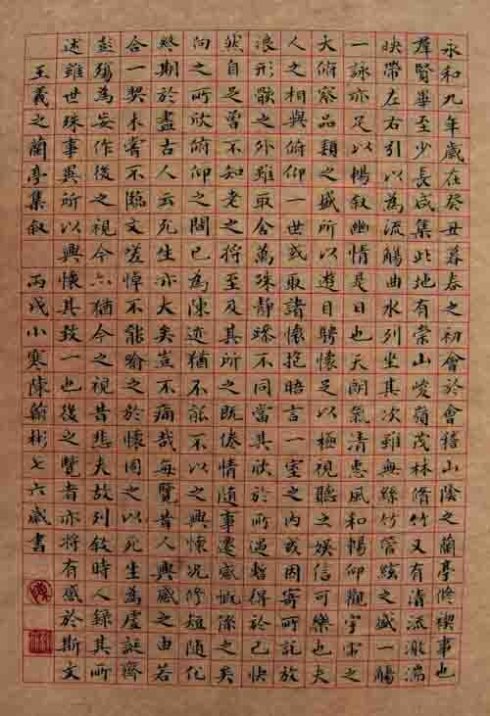 永和九年歲在癸丑暮春之初會於會稽山陰之蘭亭脩禊事也
羣賢畢至少長咸集此地有崇山峻嶺茂林脩竹又有清流激湍
映帶左右引以為流觴曲水列坐其次雖無絲竹管絃之盛一觴
一詠亦足以暢敘幽情是日也天朗氣清惠風和暢仰觀宇宙之
大俯察品類之盛所以遊目騁懷足以極視聽之娛信可樂也夫
人之相與俯仰一世或取諸懷抱晤言一室之內或因寄所託放
浪形骸之外雖取舍萬殊靜躁不同當其欣於所遇暫得於己快
然自足曾不知老之將至及其所之既倦情隨事遷感慨係之矣
向之所欣俯仰之間已為陳迹猶不能不以之興懷況修短隨化
終期於盡古人云死生亦大矣豈不痛哉每覽昔人興感之由若
合一契未嘗不臨文嗟悼不能喻之於懷固之以死生為虛誕齊
彭殤為妄作後之視今亦猶今之視昔悲夫故列敘時人錄其所
述雖世殊事異所以興懷其致一也後之覽者亦將有感於斯文
王羲之蘭亭集敘 丙戌小寒陳翰彬七六歲書